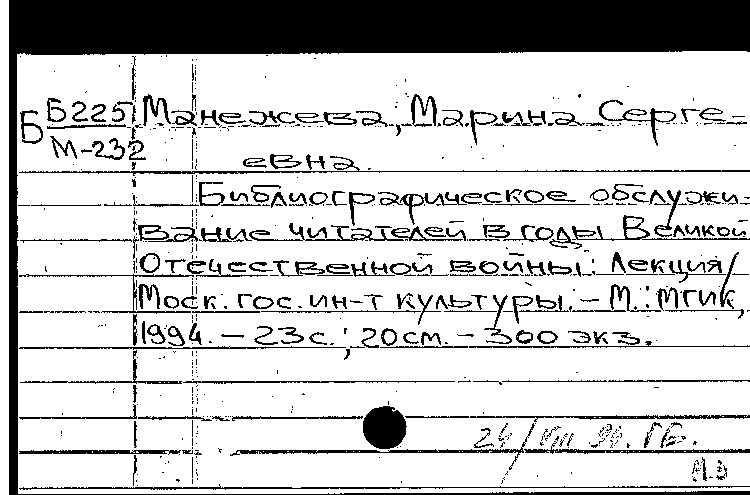 Б Б225
М-232
Манежева, Марина Серге-
евна.
Библиографическое обслужи-
вание читателей в годы Великой
Отечественной войны: Лекция/
Моск. гос. ин-т культуры. – М.: МГИК,
1994. – 23с.; 20см. – 300 экз.
24/VIII 94. ГБ.